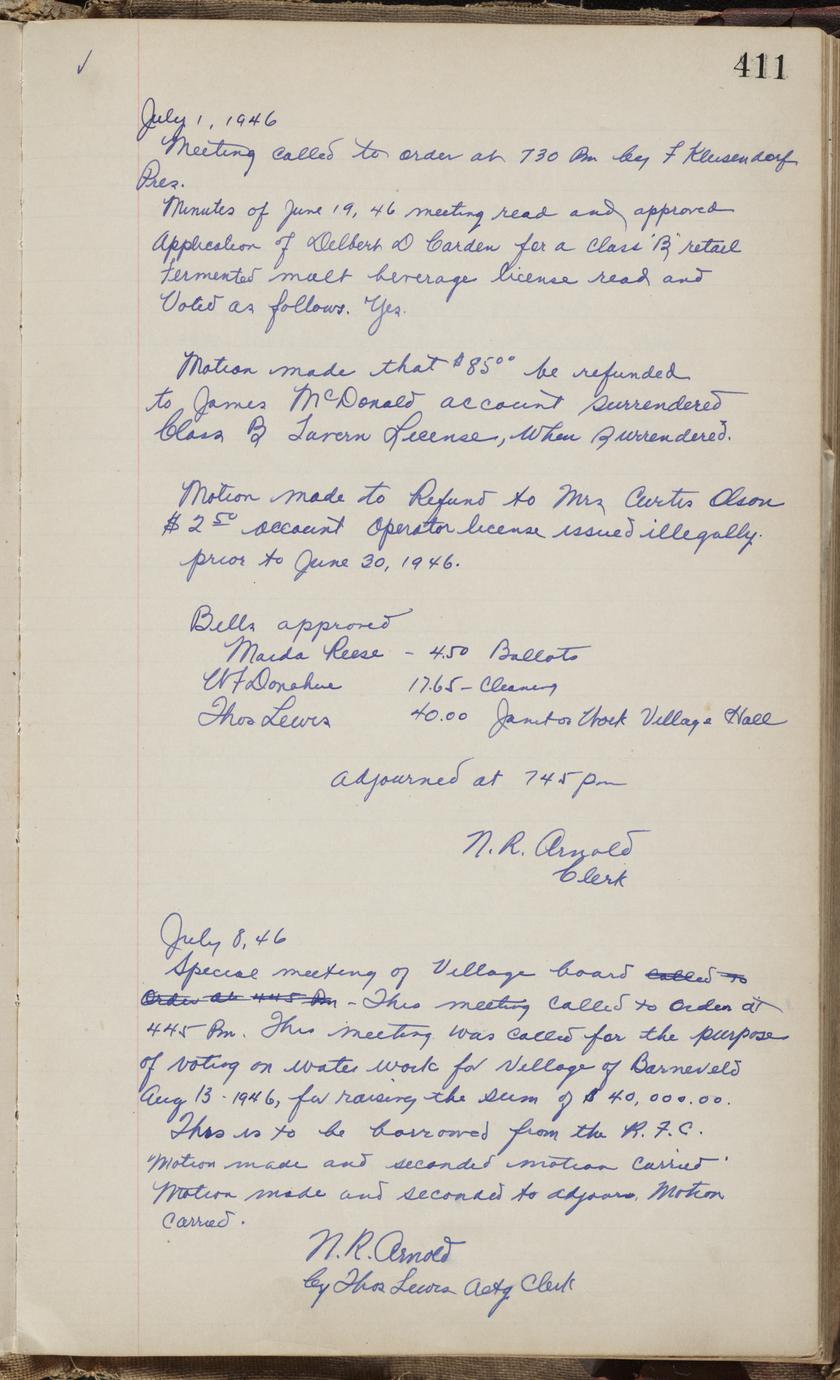 411
July 1, 1946
Meeting called to order at 730 Pm by F Kleusendorf
Pres.
Minutes of June 19, 46 meeting read and approved
Application of Delbert D Carden for a class "B" retail
Fermented malt beverage license read and
Voted as follows. Yes.
Motion made that $85⁰⁰ be refunded
to James McDonald account surrendered
Class B Tavern License, When Surrendered.
Motion made to Refund to Mrs Curtis Olson
$2⁵⁰ account Operator license issued illegally.
prior to June 30, 1946.
Bills approved
Maida Reese - 4.50 Ballots
W F Donahue 17.65 - Cleaning
Thos Lewis 40.00 Janitor Work Village Hall
Adjourned at 745 pm
N. R. Arnold
Clerk
July 8, 46
Special meeting of Village board called to
Order at 445 Pm - This meeting called to order at
445 Pm. This meeting was called for the purpose
of voting on water work for Village of Barneveld
Aug 13 - 1946, for raising the sum of $40,000.00.
This is to be borrowed from the R.F.C.
"Motion made and seconded motion carried"
Motion made and seconded to adjourn. Motion
carried.
N. R. Arnold
by Thos Lewis Actg Clerk